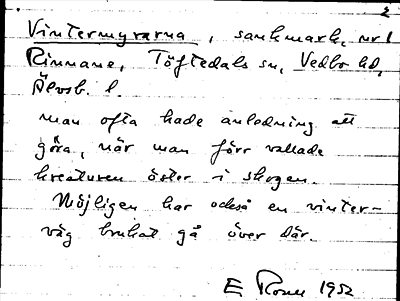 2
Vintermyrarna, sankmark, nr 1
Rinnane, Töftedals sn, Vedbo hd,
Älvsb. l.
man ofta hade anledning att
göra, när man förr vallade
kreaturen öster i skogen.
Möjligen har också en vinter-
väg brukat gå över där.
E 1952